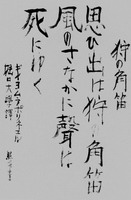 狩の角笛
思ひ出は狩の角笛
風のさなかに聲は
死にゆく
ギイヨムアポリネエル
堀口大學譯